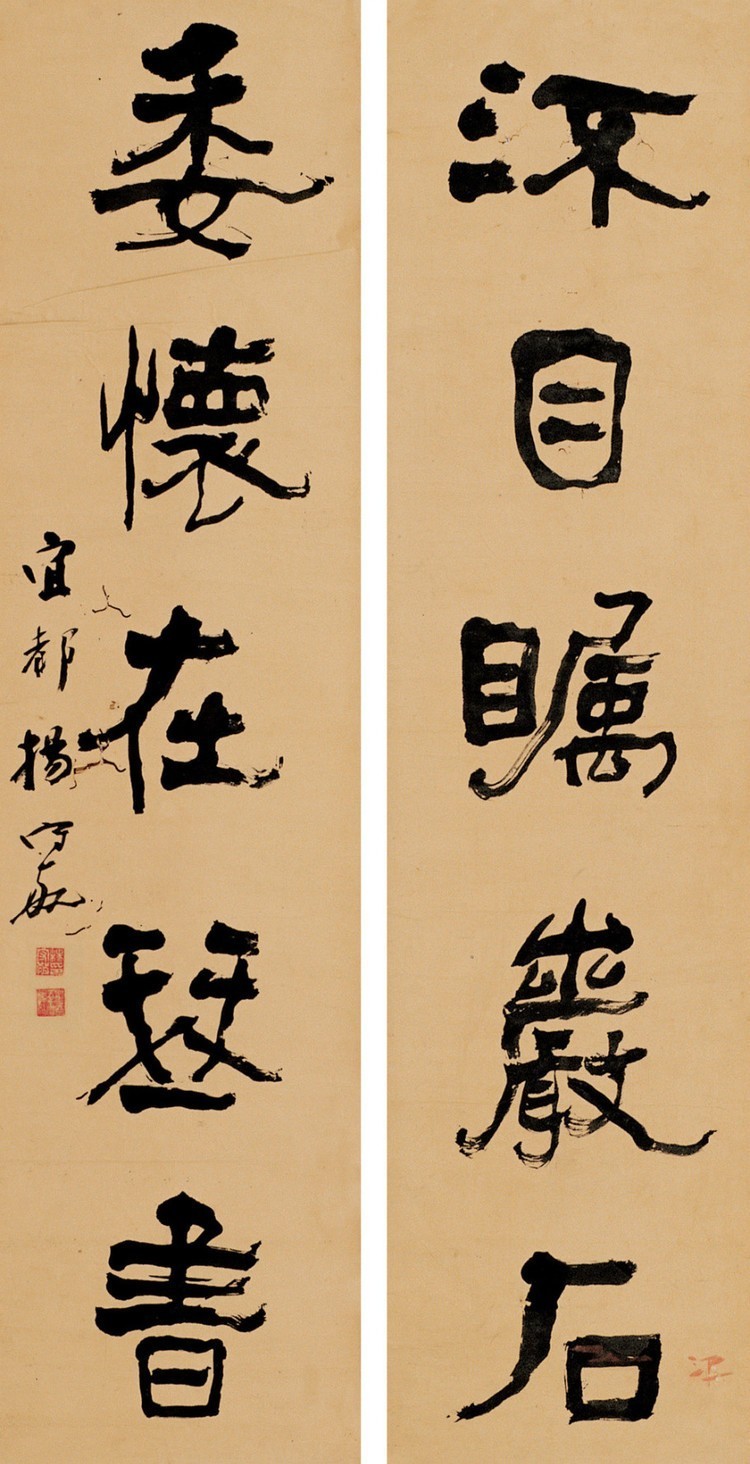 㳅目矚巖石
委懷在琴書
宜都楊守敬